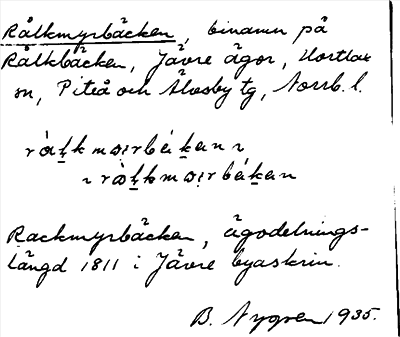 Rålkmyrbäcken, binamn på
Rålkbäcken, Jävre ägor, Hortlax
sn, Piteå och Älvsby tg, Norrb. l.
Rackmyrbäcken, ägodelnings-
längd 1811 i Jävre byaskrin.
B. Nygren 1935.